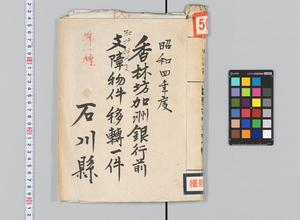 昭和四年度
香林坊加洲銀行前
支障物件移轉一件
石川縣
第一種
5